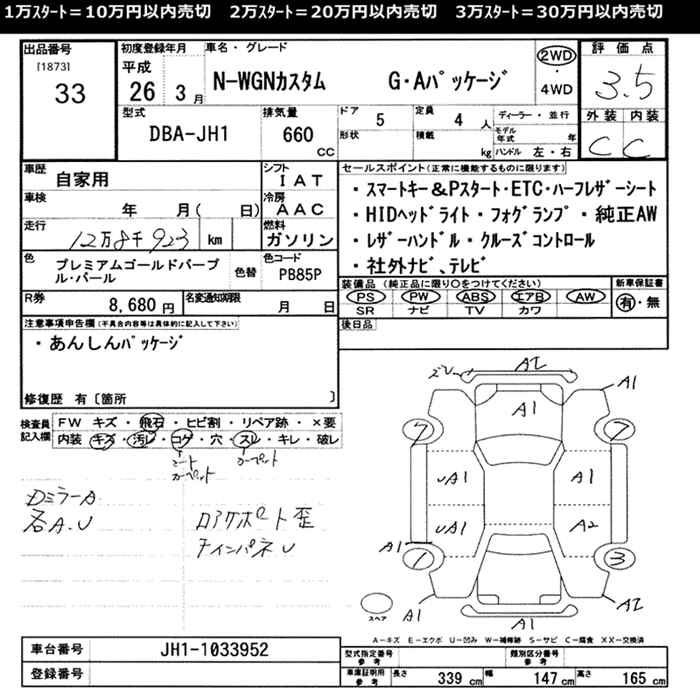 1万ｽﾀｰﾄ＝10万円以内売切　2万ｽﾀｰﾄ＝20万円以内売切　3万ｽﾀｰﾄ＝30万円以内売切
出品番号
[1873]
33
初度登録年月
平成
26 3月
車名・グレード
N-WGNカスタム G・Aパッケージ
2WD
・
4WD
評価点
3.5
外装 内装
C C
型式
DBA-JH1
排気量
660 CC
ドア 5
形状
定員 4 人
積載 kg
ディーラー・並行
モデル年式 年
ハンドル 左・右
車歴
自家用
シフト
IAT
車検
年 月( 日)
冷房
AAC
走行
12万8千923 km
燃料
ガソリン
色
プレミアムゴールドパープル・パール
色替
色コード
PB85P
R券
8,680 円
名変通知期限
月 日
セールスポイント(正常に機能するものに限ります)
・スマートキー&Pスタート・ETC・ハーフレザーシート
・HIDヘッドライト・フォグランプ・純正AW
・レザーハンドル・クルーズコントロール
・社外ナビ、テレビ
装備品(純正品に限り○をつけてください)
PS PW ABS エアB AW
SR ナビ TV カワ
新車保証書
有・無
後日品
注意事項申告欄(不具合内容等は具体的に記入して下さい)
・あんしんパッケージ
修復歴 有〔箇所 〕
検査員記入欄
FW キズ・飛石・ヒビ割・リペア跡・×要
内装・キズ・汚レ・コゲ・穴・スレ・キレ・破レ
シート
カーペット
カーペット
DミラーA
各A.U
ロアサポート歪
ナインパネU
ズレ
A2
A1
A1
7
7
UA1
A1
UA1
A2
A1
1
3
A1
A2
A1
スペア
A－キズ E－エクボ U－凹み W－補修跡 S－サビ C－腐食 XX－交換済
車台番号
JH1-1033952
登録番号
型式指定番号
参考
類別区分番号
参考
車庫証明用
参考
長さ 339 cm 幅 147 cm 高さ 165 cm